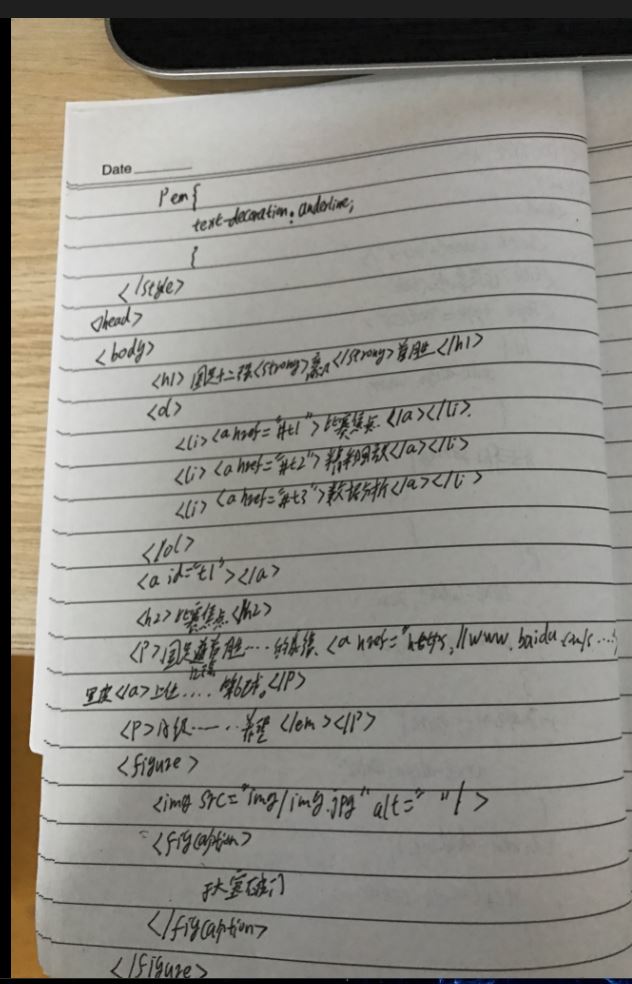 Date
P em{
text-decoration: underline;
{
</style>
<head>
<body>
<h1>国足十二强<strong>赛</strong>首胜</h1>
<ol>
<li><a href="#t1">比赛焦点</a></li>
<li><a href="#t2">精彩回放</a></li>
<li><a href="#t3">数据分析</a></li>
</ol>
<a id="t1"></a>
<h2>比赛焦点</h2>
<P>国足 首胜....的 <a href="https://www.baidu.com/s ...
</a>上 .... 球。</P>
<P> 级...... </em></P>
<figure>
<img src="img/img.jpg" alt=" "/>
<figcaption>
宝破门
</figcaption>
</figure>